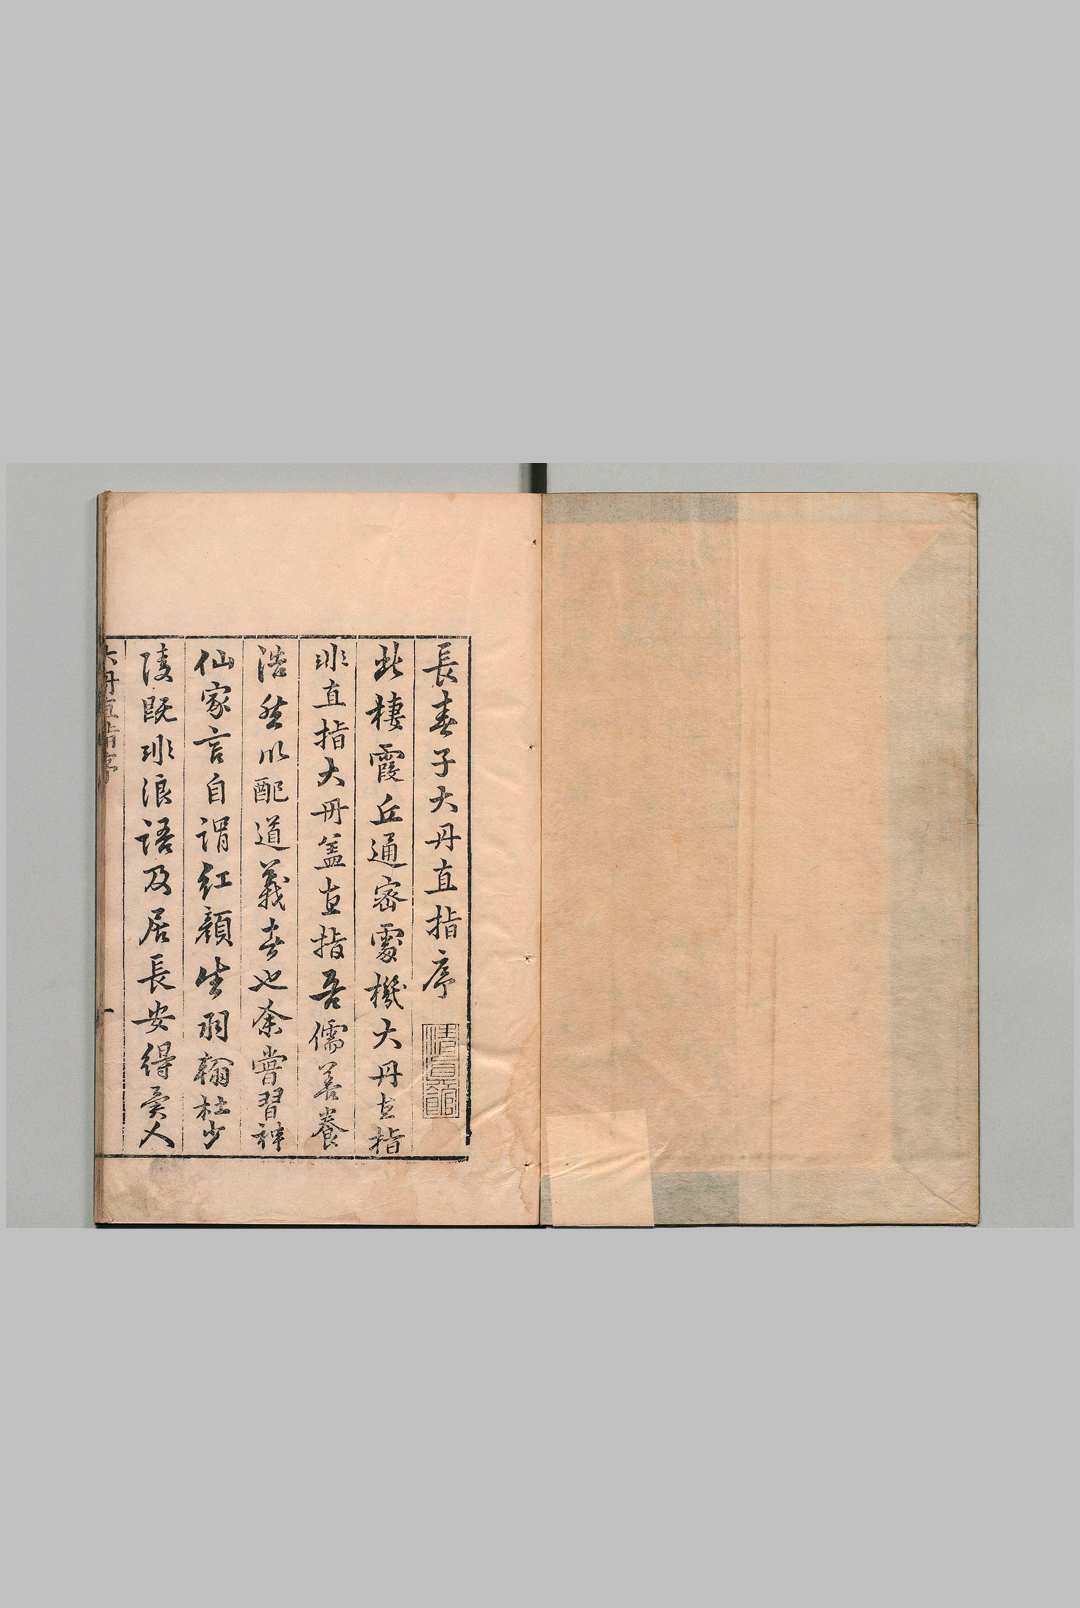 長春子大丹直指序
此棲霞丘通密處機大丹直指
非直指大丹蓋直指吾儒善養
浩然以配道義者也余嘗習神
仙家言自謂紅顏生羽翰杜少
陵既非浪語及居長安得異人
大丹直指序
一